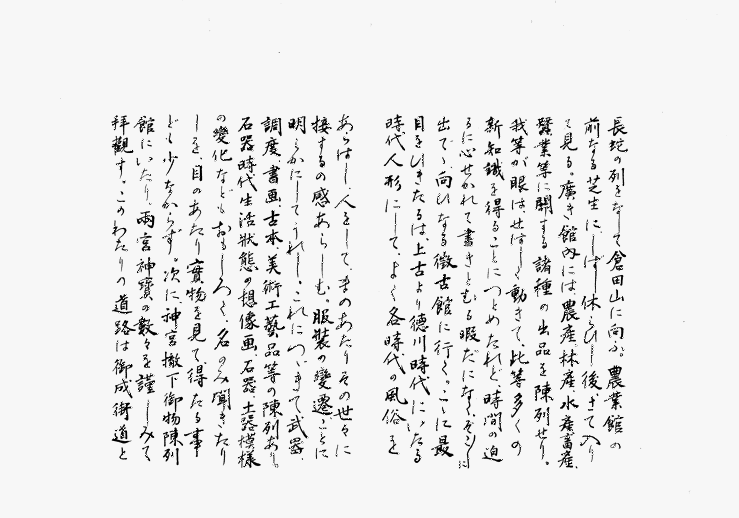 長蛇の列をなして倉田山に向ふ。農業館の
前なる芝生にしばし休らひし後ぎて入り
て見る。廣き館内には農産、林産、水産、畜産、
蠶業等に關する諸種の出品を陳列せり。
我等が眼はせはしく動きて、此等多くの
新知識を得ることにつとめたれど、時間の迫
るに心せかれて書きとむる暇だになくぞンしに
出でゝ向ひなる徴古館に行く。こゝに最
目をひきたるは、上古より徳川時代にいたる
時代人形にして、よく各時代の風俗を
あらはし、人をして、まのあたりその世々に
接するの感あらしむ。服裝の變遷ことに
明らかにしてうれし。これにつゞきて武器、
調度、書画、古本、美術工藝品等の陳列あり。
石器時代生活狀態の想像画、石器、土器模樣
の變化などもおもしろく、名のみ聞きたり
しを、目のあたり實物を見て、得たる事
ども少なからず。次に、神宮撤下御物陳列
館にいたり、兩宮神寶の數々を謹しみて
拜觀す。このわたりの道路は御成街道と